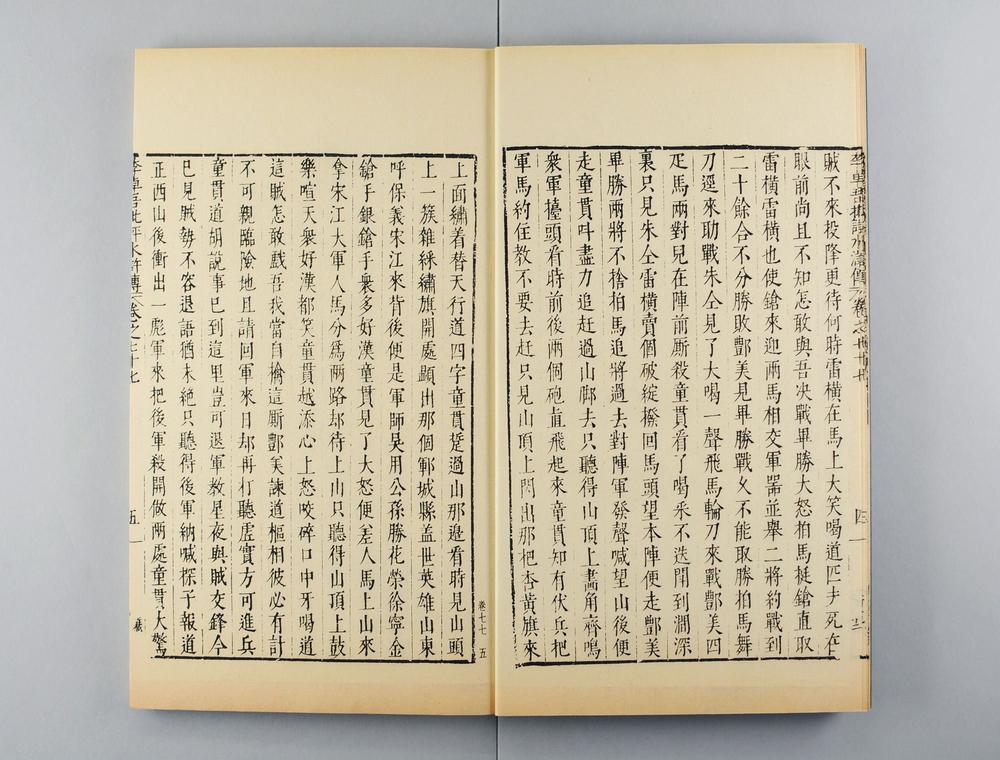 李卓吾批評水滸傳 卷之七十七 四
賊不來投降更待何時雷橫在馬上大笑喝道匹夫死在
眼前尚且不知怎敢與吾決戰畢勝大怒拍馬挺鎗直取
雷橫雷橫也使鎗來迎兩馬相交軍器並舉二將約戰到
二十餘合不分勝敗酆美見畢勝戰久不能取勝拍馬舞
刀逕來助戰朱仝見了大喝一聲飛馬輪刀來戰酆美四
疋馬兩對兒在陣前厮殺童貫看了喝采不迭鬪到澗深
裏只見朱仝雷橫賣個破綻撥回馬頭望本陣便走酆美
畢勝兩將不捨拍馬追將過去對陣軍發聲喊望山後便
走童貫叫盡力追赶過山脚去只聽得山頂上畵角齊鳴
衆軍擡頭看時前後兩個砲直飛起來童貫知有伏兵把
軍馬約住教不要去赶只見山頂上閃出那把杏黃旗來
卷七七 五
上面繡着替天行道四字童貫踅過山那邉看時見山頭
上一簇雜綵繡旗開處顯出那個鄆城縣盖世英雄山東
呼保義宋江來背後便是軍師吴用公孫勝花榮徐寧金
鎗手銀鎗手衆多好漢童貫見了大怒便差人馬上山來
拿宋江大軍人馬分爲兩路却待上山只聽得山頂上鼓
樂喧天衆好漢都笑童貫越添心上怒咬碎口中牙喝道
這賊怎敢戲吾我當自擒這厮酆美諫道樞相彼必有計
不可親臨險地且請回軍來日却再打聽虛實方可進兵
童貫道胡說事已到這里豈可退軍教星夜與賊交鋒今
已見賊勢不容退語猶未絶只聽得後軍納喊探子報道
正西山後衝出一彪軍來把後軍殺開做兩處童貫大驚
李卓吾批評水滸傳 卷之七十七 五